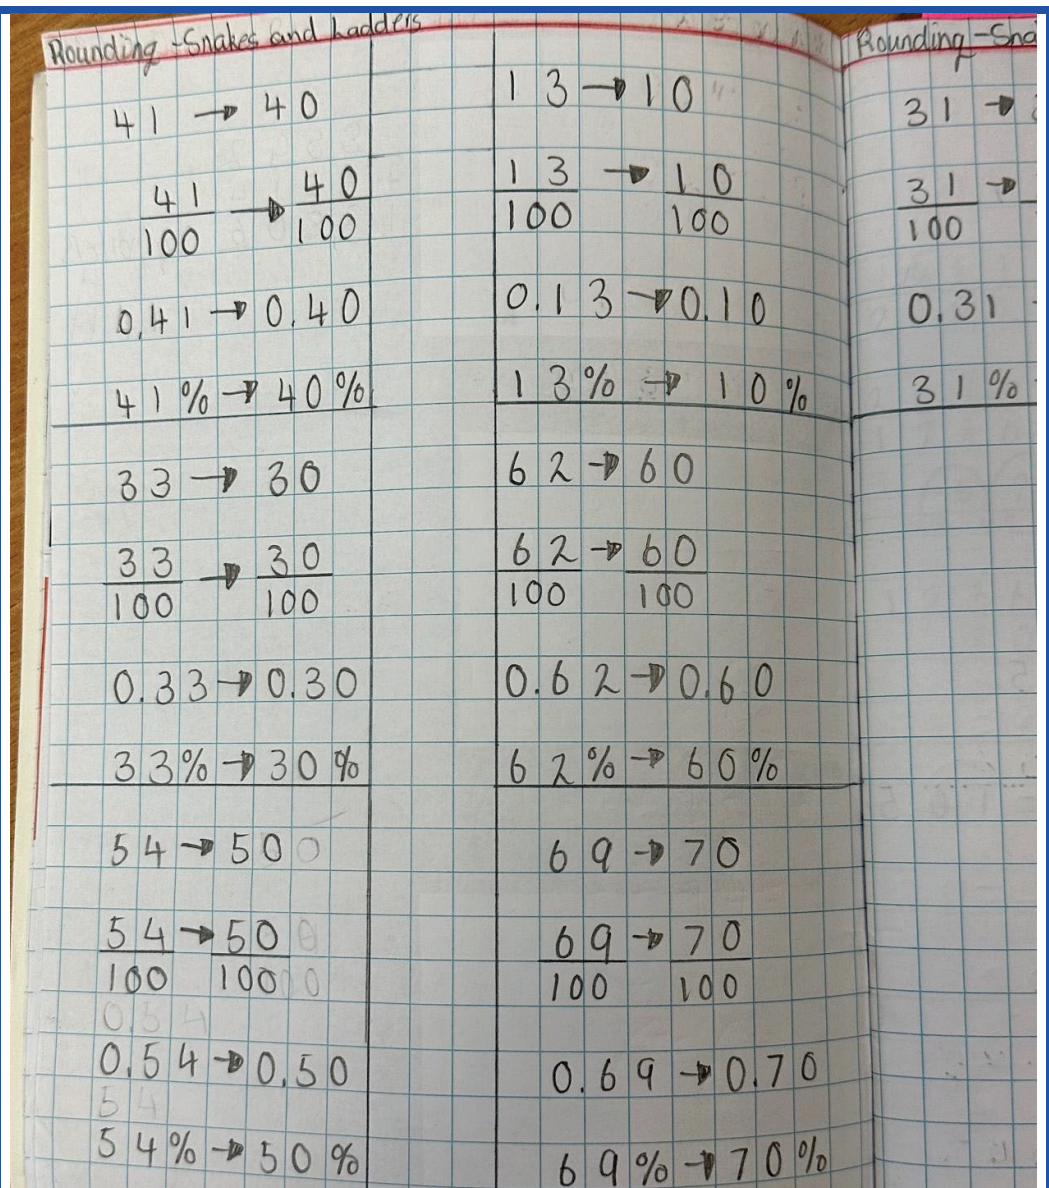 Rounding - Snakes and Ladders
41 → 40
41/100 → 40/100
0.41 → 0.40
41% → 40%
33 → 30
33/100 → 30/100
0.33 → 0.30
33% → 30%
54 → 50
54/100 → 50/100
0.54 → 0.50
54% → 50%
13 → 10
13/100 → 10/100
0.13 → 0.10
13% → 10%
62 → 60
62/100 → 60/100
0.62 → 0.60
62% → 60%
69 → 70
69/100 → 70/100
0.69 → 0.70
69% → 70%
Rounding - Sna
31 →
31/100 →
0.31
31%